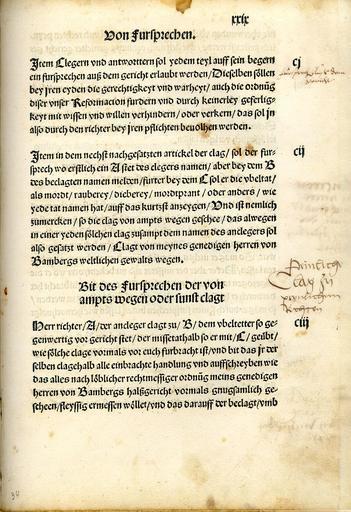 xxix
Von Fursprechen.
Jtem Clegern vnd antworttern sol yedem teyl auff sein begern cj
ein fursprechen auß dem gericht erlaubt werden/ Dieselben söllen
bey jren eyden die gerechtigkeyt vnd warheyt/ auch die ordnūg
diser vnser Reformacion furdern vnd durch keinerley geferlig-
keyt mit wissen vnd willen verhindern/ oder verkern/ das sol jn
also durch den richter bey jren pflichten beuolhen werden.
Jtem in dem nechst nachgesatzten artickel der clag/ sol der fur- cij
sprech wo erstlich ein A stet des clegers namen/ aber bey dem B
des beclagten namen melden/ furter bey dem C sol er die vbeltat/
als mordt/ rauberey/ dieberey/ mordtprant/ oder anders/ wie
yede tat namen hat/ auff das kurtzst anzeygen/ Vnd ist nemlich
zumercken/ so die clag von ampts wegen geschee/ das alwegen
in einer yeden sölichen clag zusampt dem namen des anclegers sol
also gesatzt werden/ Clagt von meynes genedigen herren von
Bambergs weltlichen gewalts wegen.
Peinlich
Clag
peinlichem
Rechten
Bit des Fursprechen der von
ampts wegen oder sunst clagt
Herr richter/ A/ der ancleger clagt zu/ B/ dem vbeltetter so ge- ciij
genwertig vor gericht stet/ der missetat halb so er mit/ C/ geübt/
wie sölche clage vormals vor euch furbracht ist/ vnd bit das jr der
selben clage halb alle einbrachte handlung vnd auffschreyben wie
das alles nach löblicher rechtmessiger ordnūg meins genedigen
herren von Bambergs halßgericht vormals gnugsamlich ge-
scheen/ fleyssig ermessen wöllet/ vnd das darauff der beclagt/ vmb